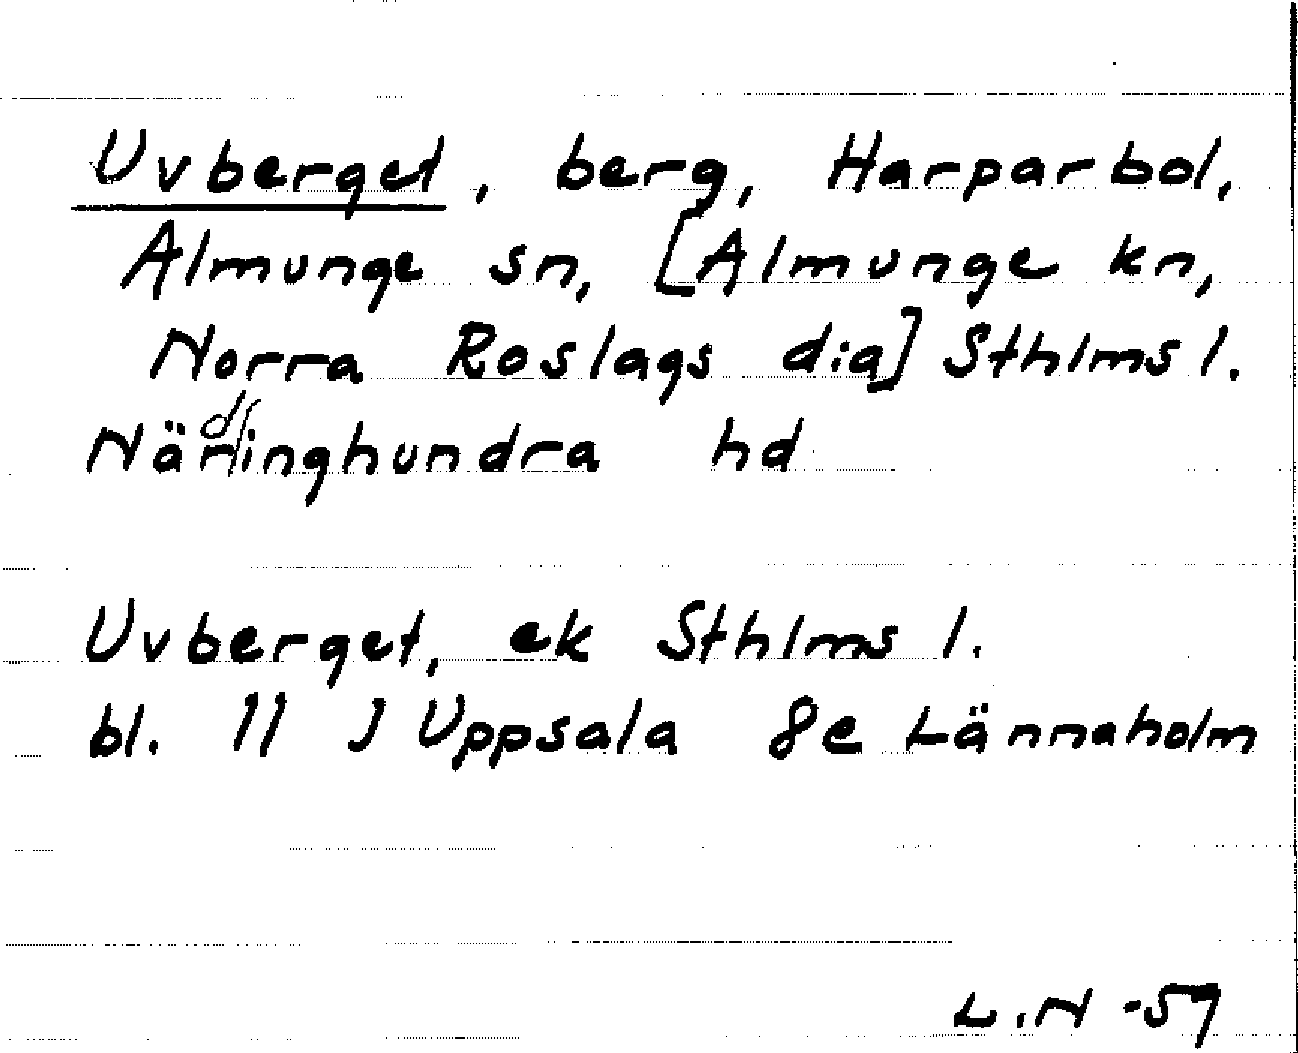 Uvberget, berg, Harparbol,
Almunge sn, [Almunge kn,
Norra Roslags dia] Sthlms l.
Närdinghundra hd
Uvberget, ek Sthlms l.
bl. 11 J Uppsala 8e Lännaholm
L.N -57